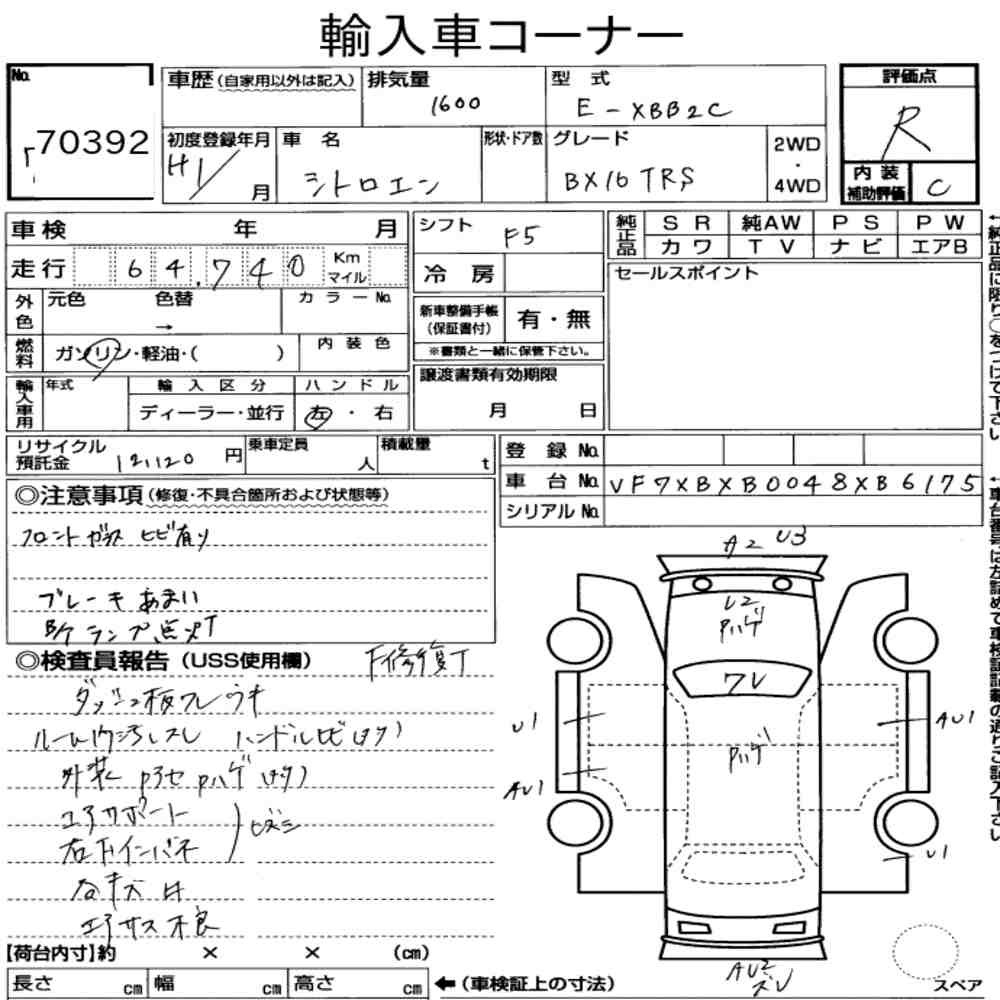 輸入車コーナー
No.
70392
車歴(自家用以外は記入)
排気量
1600
型式
E-XBB2C
評価点
R
初度登録年月
H1/
月
車名
シトロエン
形状・ドア数
グレード
BX16 TRS
2WD
・
4WD
内装
補助評価
C
車検 年 月
走行 64.740 Km マイル
シフト
F5
冷房
純正品
SR 純AW PS PW
カワ TV ナビ エアB
セールスポイント
←純正品に限り○をつけて下さい
外色
元色 色替
→
カラーNo.
新車整備手帳
(保証書付)
有・無
※書類と一緒に保管下さい。
燃料
ガソリン・軽油・( )
内装色
譲渡書類有効期限
月 日
輸入車用
年式
輸入区分
ハンドル
ディーラー・並行
左・右
リサイクル
預託金
121120円
乗車定員
人
積載量
t
登録No.
車台No. VF7XBXB0048XB6175
シリアルNo.
↑車台番号は左詰めで車検証記載の通りご記入下さい
◎注意事項(修復・不具合箇所および状態等)
フロントガラス ヒビ有り
ブレーキあまい
B/Kランプ点灯
◎検査員報告(USS使用欄)
F修復T
ダッシュ板ワレ ウキ
ルーム内汚レスレ ハンドルヒビ
外装 Pハゲ
エアサポート
右ドアインバネ
エアサス不良
A2 U3
Pハゲ
ワレ
Pハゲ
U1
AU1
AU1
U1
AU2
【荷台内寸】約 × × (cm)
長さ cm 幅 cm 高さ cm
←(車検証上の寸法)
スペア